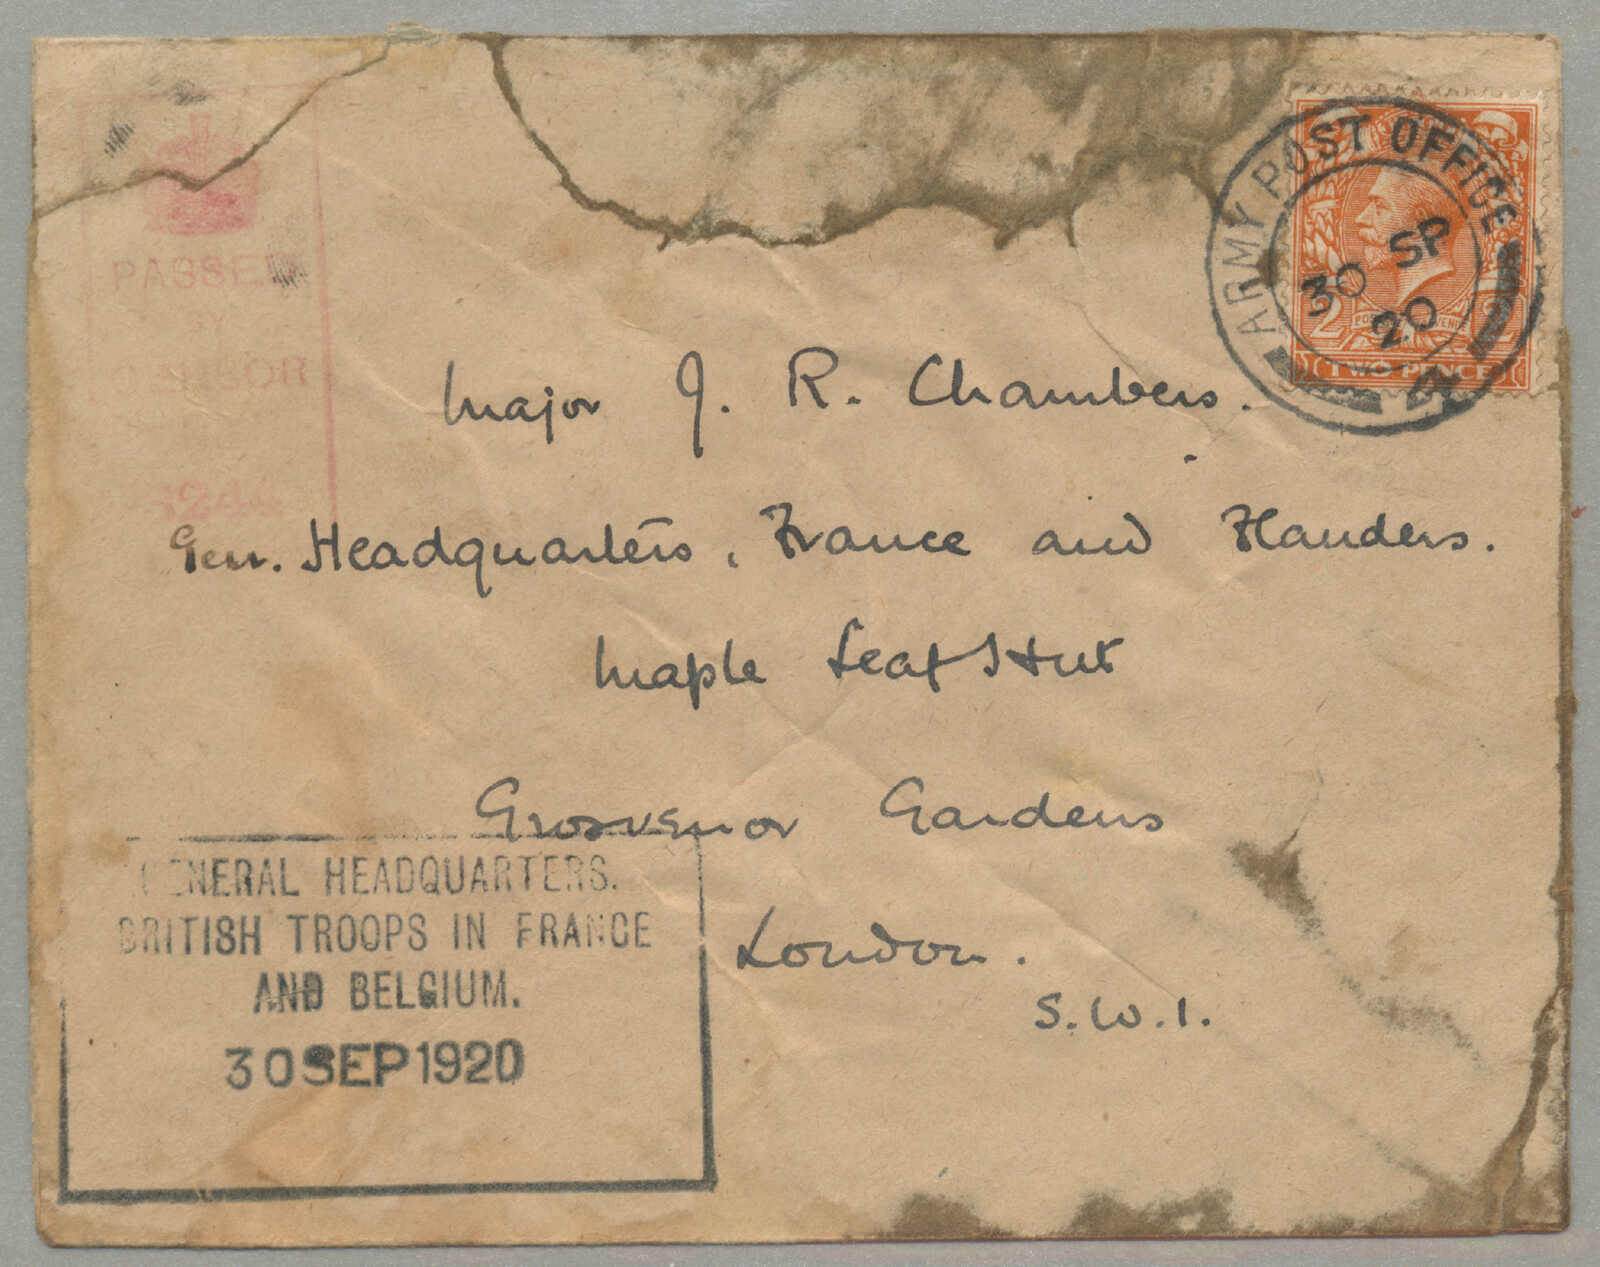 PASSED
BY
CENSOR
4244
ARMY POST OFFICE
30 SP
20
2 2
TWO PENCE
Major J. R. Chambers.
Gen. Headquarters, France and Flanders.
Maple Leaf Hut
Grosvenor Gardens
London.
S.W.1.
GENERAL HEADQUARTERS.
BRITISH TROOPS IN FRANCE
AND BELGIUM.
30 SEP 1920